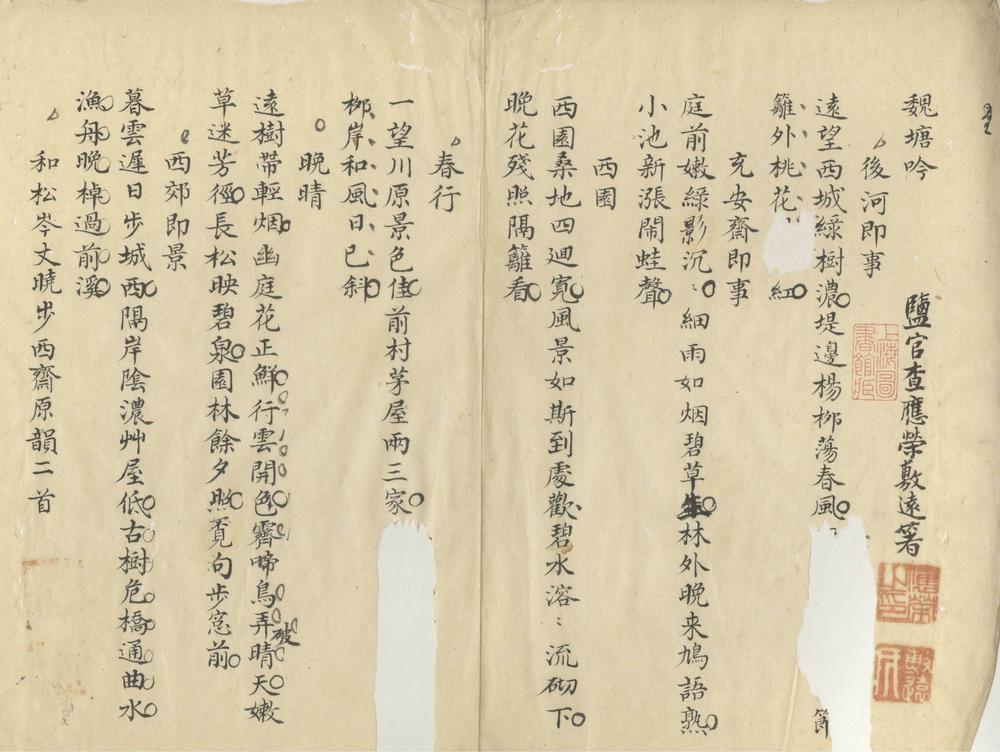 魏塘吟
鹽官查應榮敷遠箸
上海圖書館藏
後河即事
遠望西城綠樹濃堤邊楊柳蕩春風
節
籬外桃花紅
充安齋即事
庭前嫩綠影沉〻細雨如烟碧草生林外晚来鳩語熟
小池新漲閙蛙聲
西園
西園桑地四廻寬風景如斯到處歡碧水溶〻流砌下
晚花殘照隔籬看
春行
一望川原景色佳前村茅屋兩三家
柳岸和風日已斜
晚晴
遠樹帶輕烟幽庭花正鮮行雲開色霽啼鳥弄晴天嫩
破
草迷芳徑長松映碧泉園林餘夕照覔句步窓前
西郊即景
暮雲遲日步城西隅岸陰濃艸屋低古樹危橋通曲水
漁舟晚棹過前溪
和松岑丈曉步西齋原韻二首